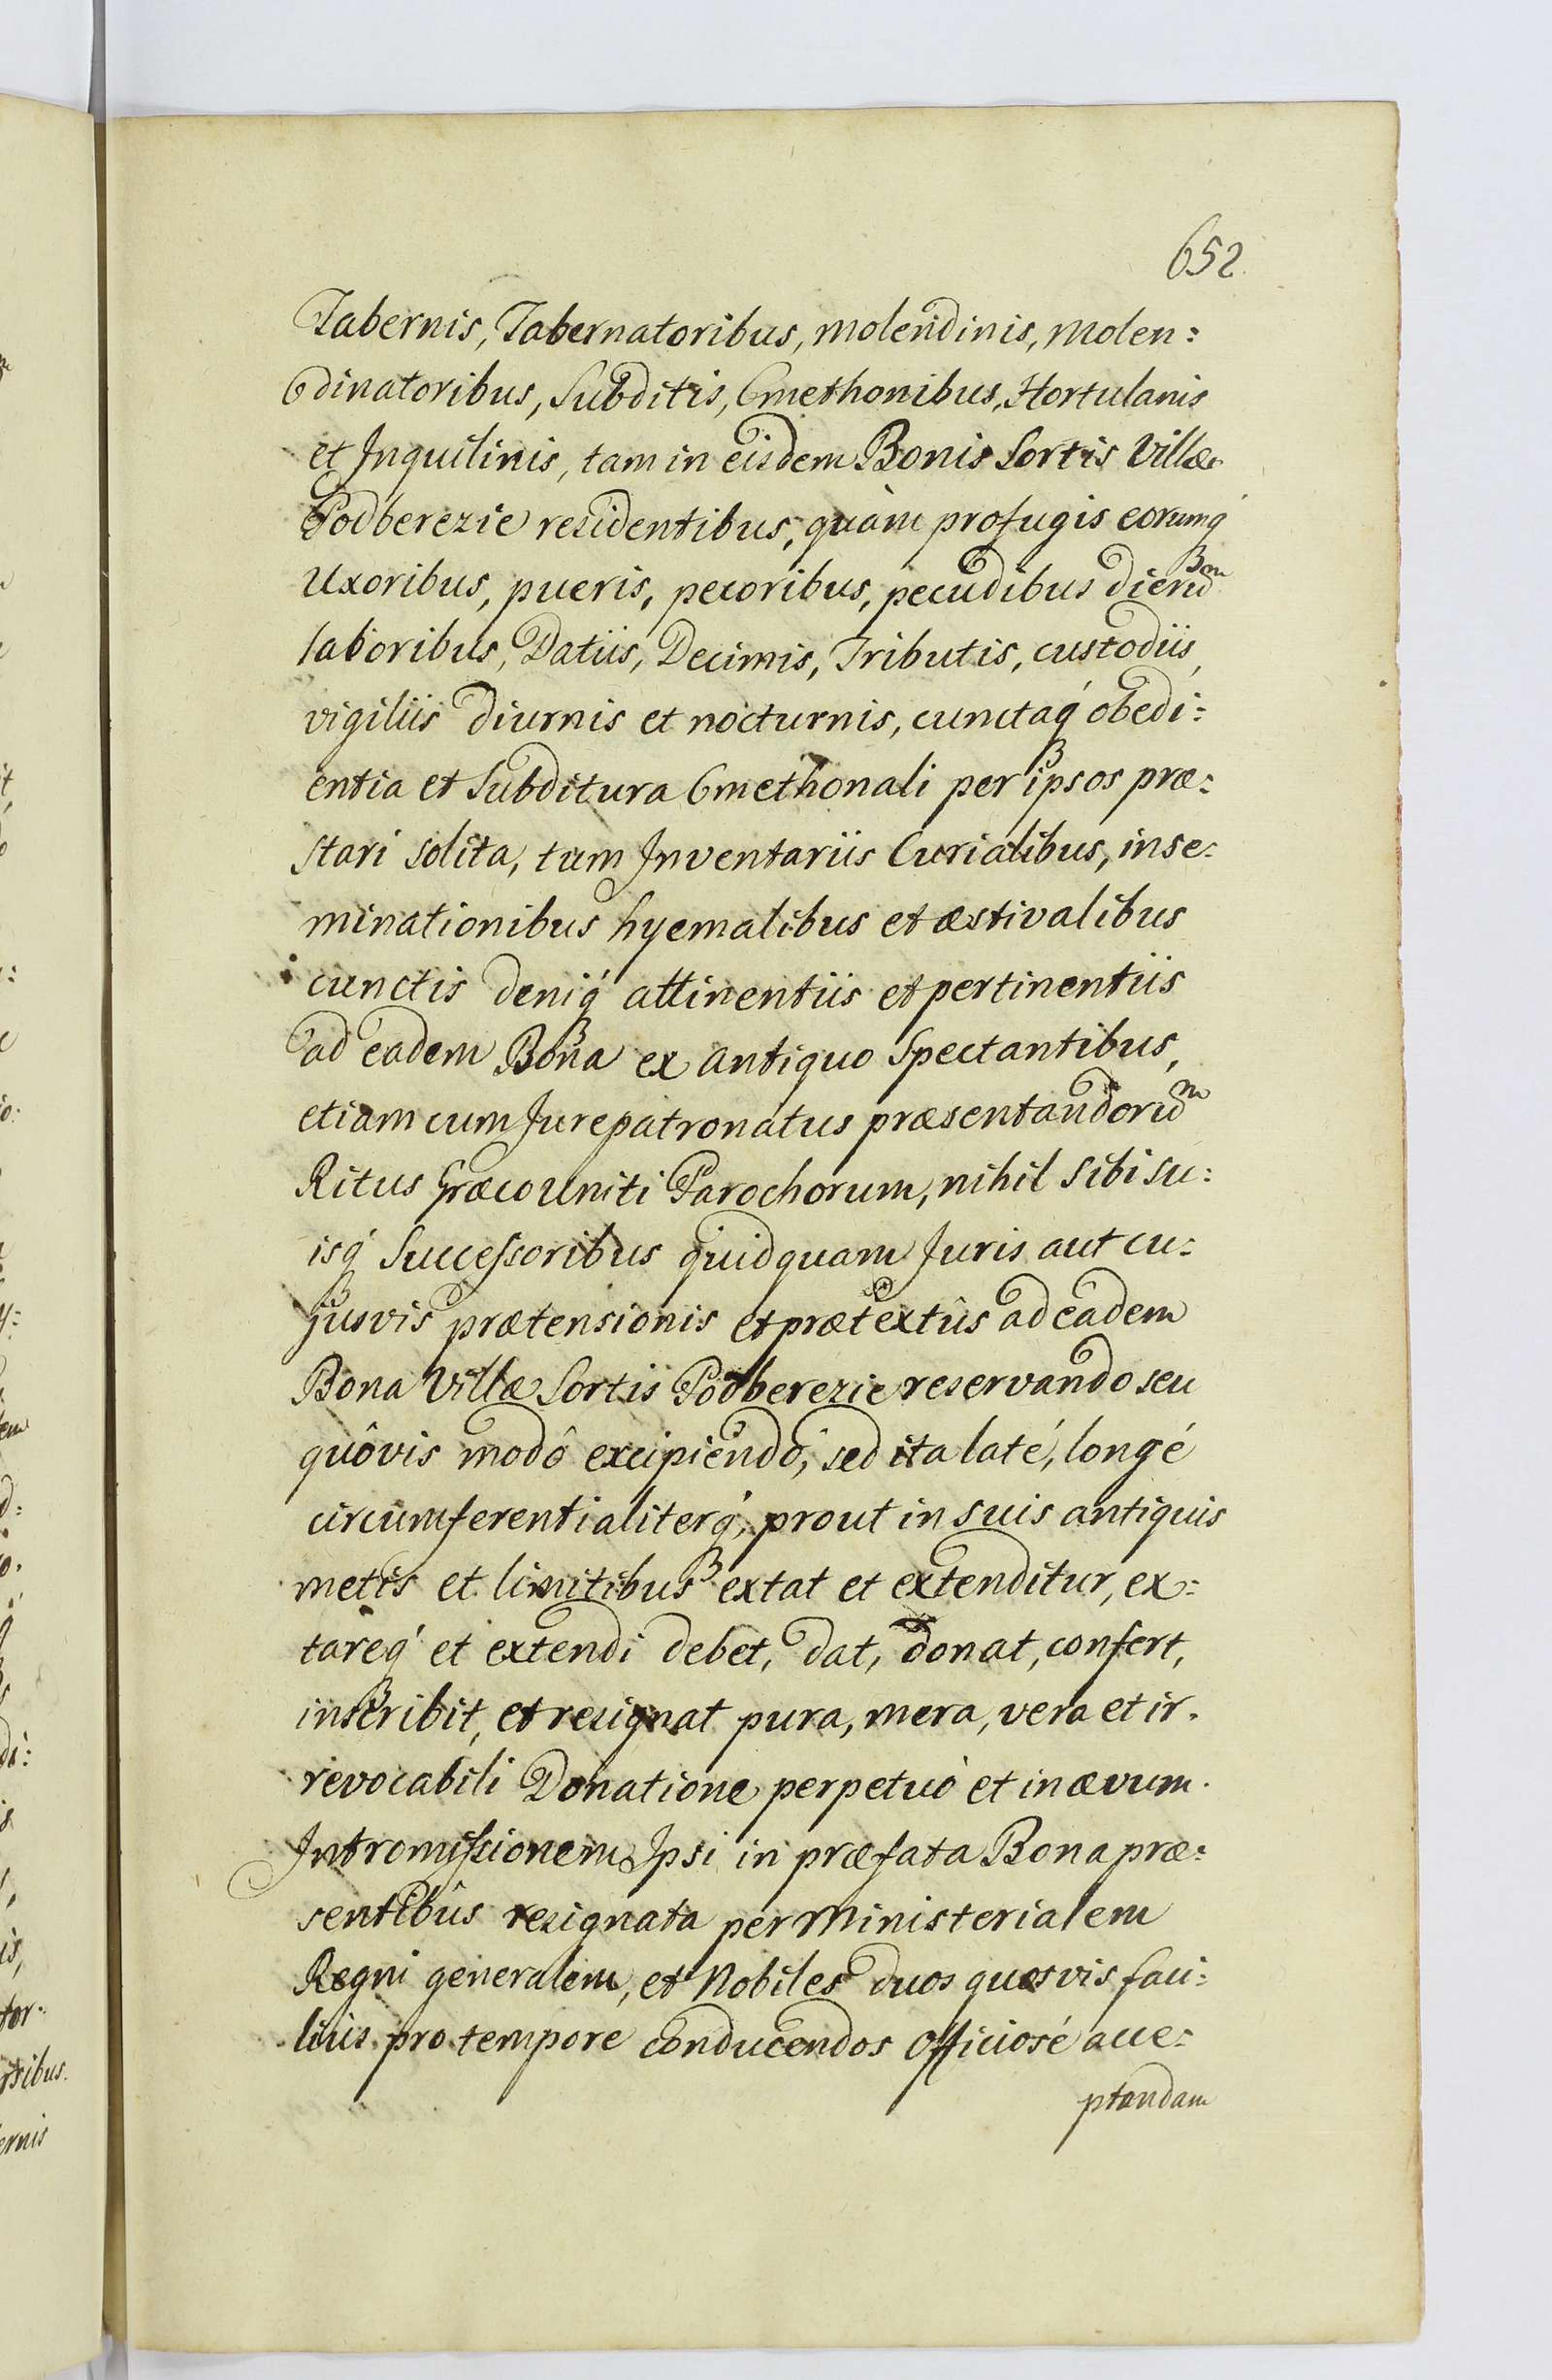 652.
Tabernis, Tabernatoribus, molendinis, Molen:
dinatoribus, Subditis, Cmethonibus, Hortulanis
et Inquilinis, tam in eisdem Bonis Sortis Villæ
Podberezie residentibus, quàm profugis eorumq́
Uxoribus, pueris, pecoribus, pecudibus
laboribus, Datiis, Decimis, Tributis, custodiis,
vigiliis diurnis et nocturnis, cunctaq́ obedi:
entia et Subditura Cmethonali per ipsos præ:
stari solita, tum Inventariis Curialibus, inse:
minationibus hyemalibus et æstivalibus
cunctis deniq́ attinentiis et pertinentiis
ad eadem Bona ex antiquo Spectantibus,
etiam cum Jurepatronatus præsentandorum
Ritus Græco Uniti Parochorum, nihil Sibi su:
isq́ Successoribus quidquam Juris aut cu:
jusvis prætensionis et prætextûs ad eadem
Bona Villæ Sortis Podberezie reservando seu
quôvis modô excipiendô, sed ita laté, longé
circumferentialiterq́, prout in suis antiquis
metis et limitibus extat et extenditur, ex:
tareq́ et extendi debet, dat, donat, confert,
inscribit, et resignat pura, mera, vera et ir.
revocabili Donatione perpetuò et in ævum.
Intromissionem Ipsi in præfata Bona præ:
sentibûs resignata per Ministerialem
Regni generalem, et Nobiles duos quosvis faci:
liùs pro tempore conducendos Officiosé acce:
ptandam